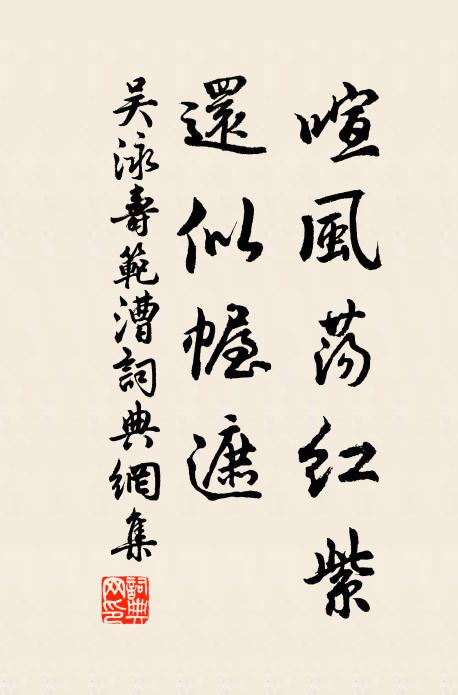 喧風荡紅紫
還似幄遮
吴泳壽範漕詞典網集
詞典网印